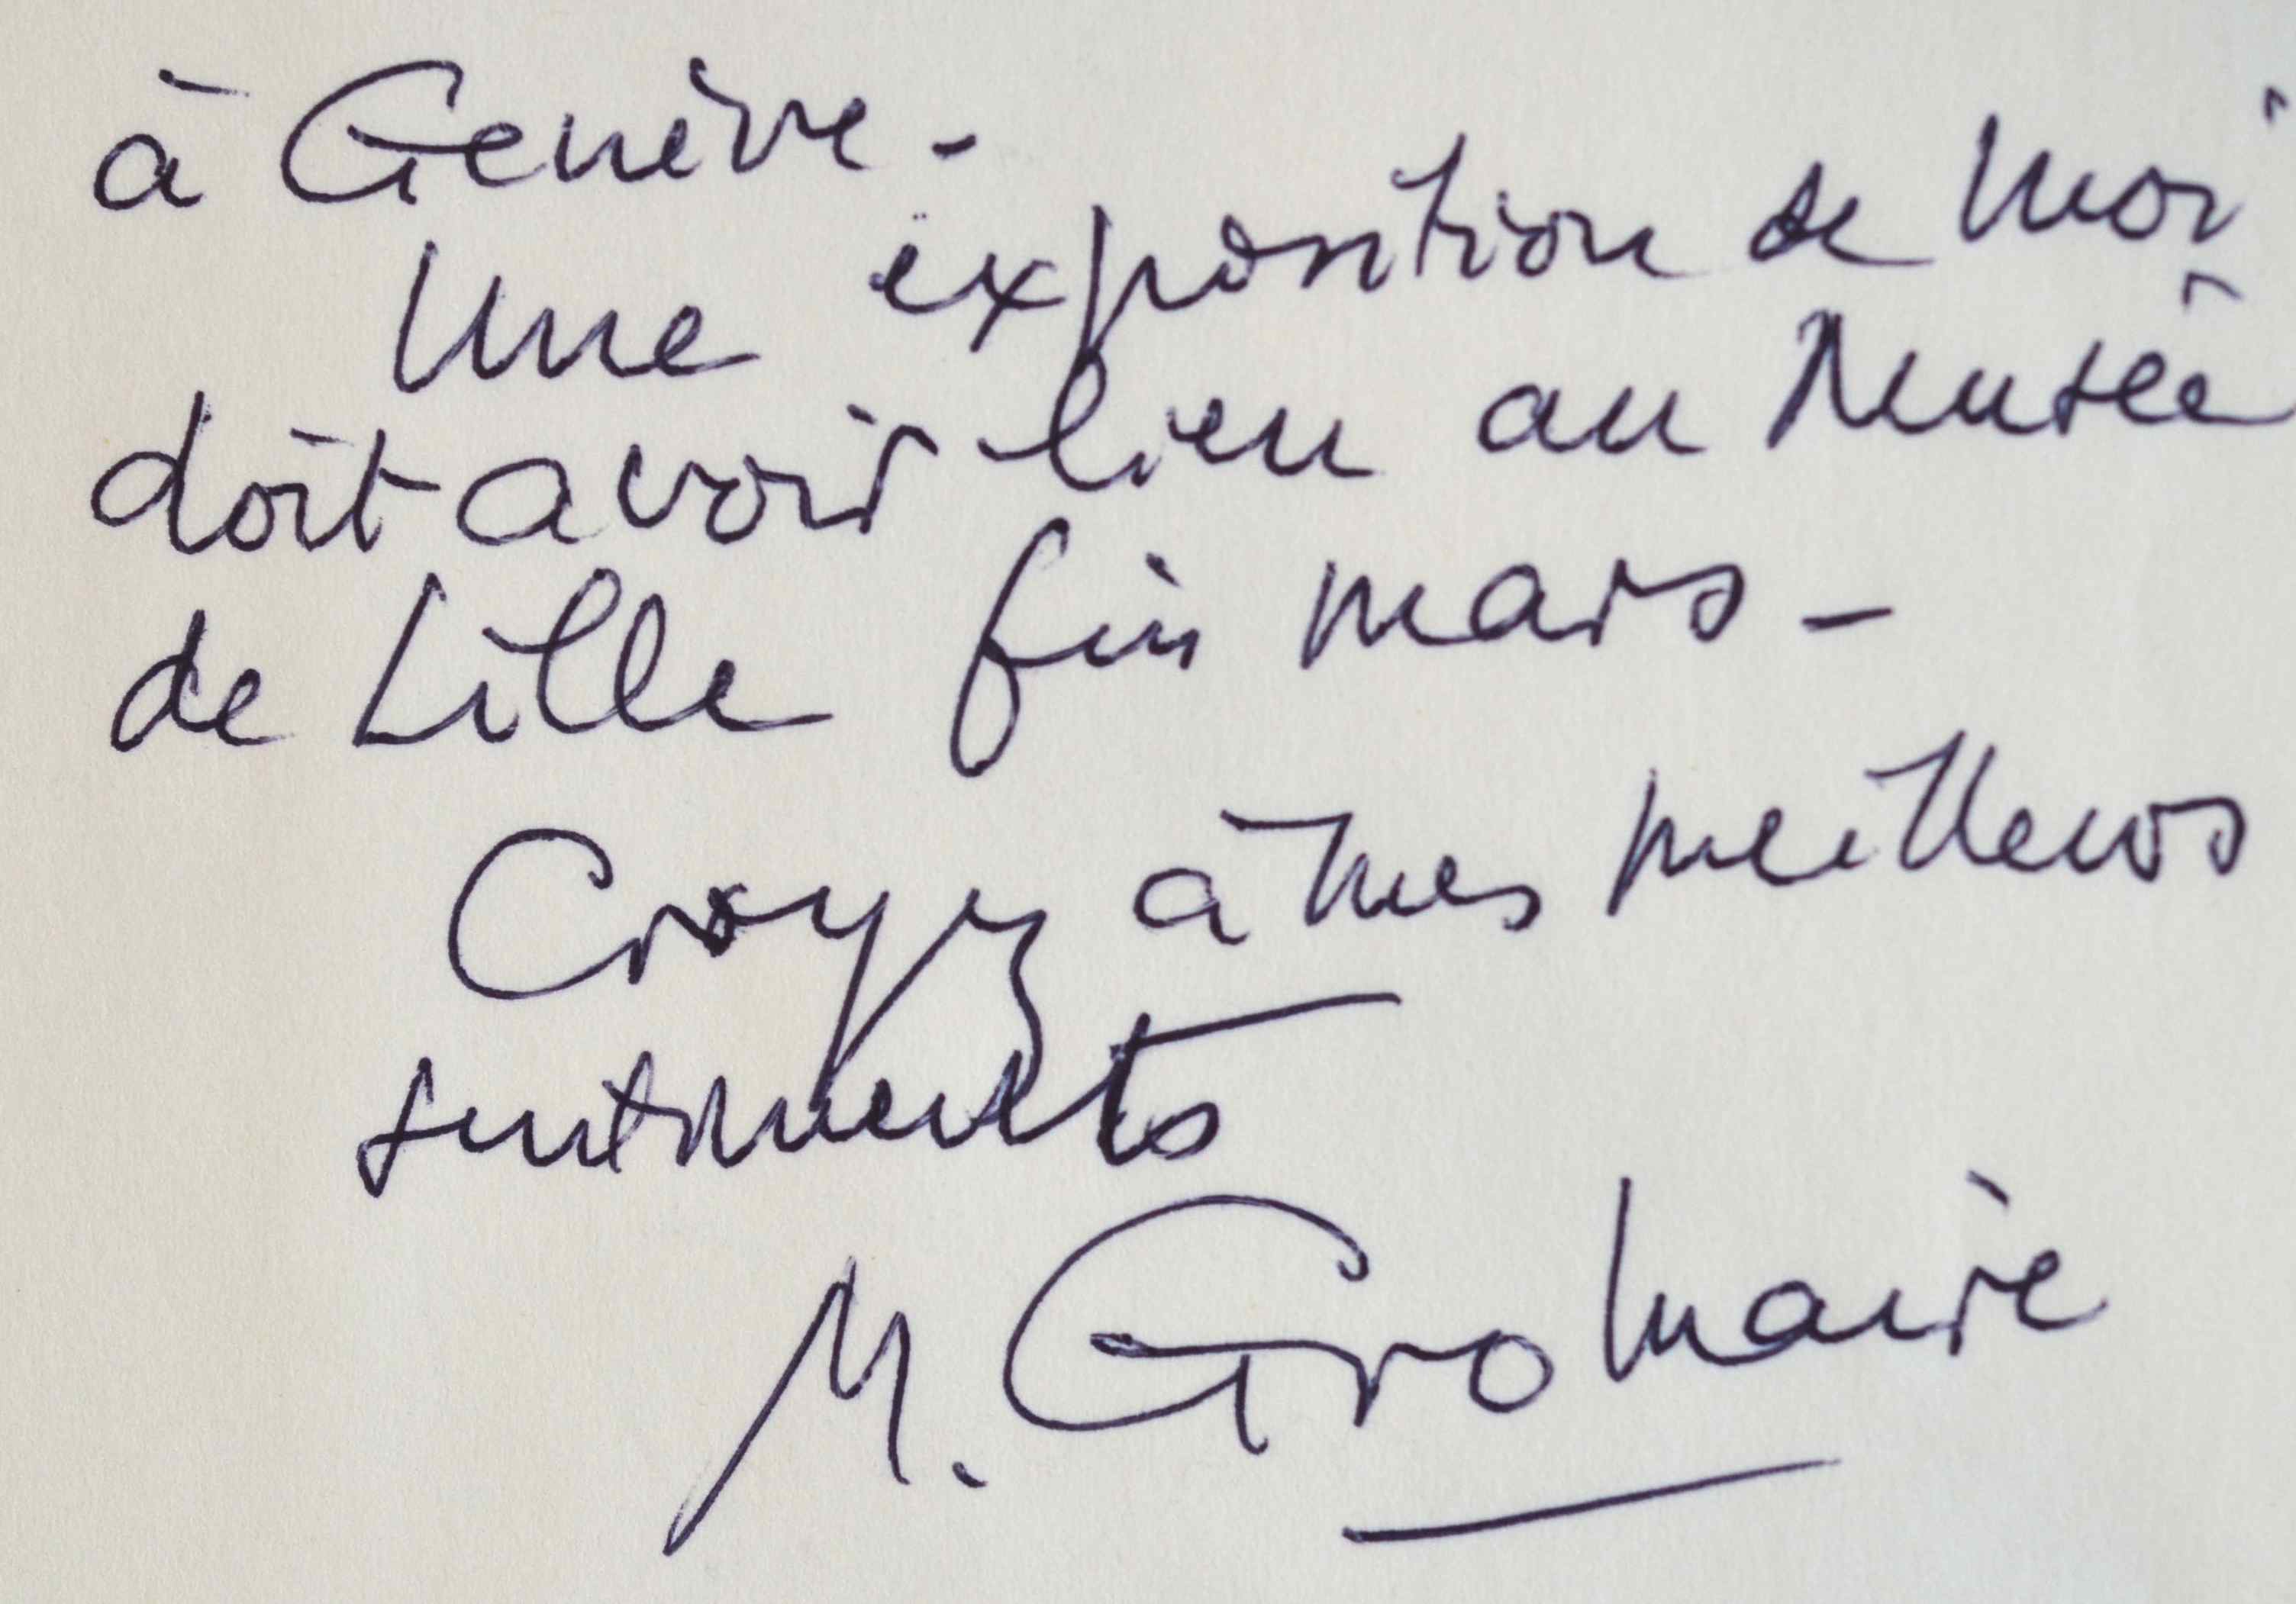 à Genève -
Une exposition de moi
doit avoir lieu au Musée
de Lille fin mars -
Croyez à mes meilleurs
sentiments
M. Gromaire